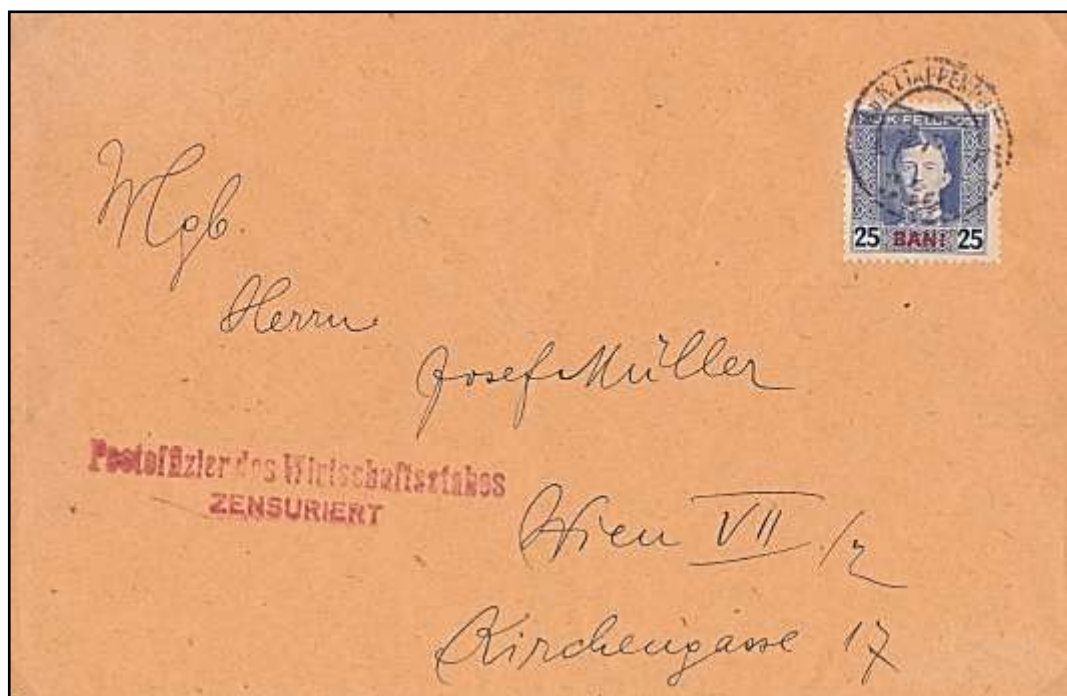 K.U.K. FELDPOST
25 BANI 25
Mgb.
Herrn
Josef Müller
Postoffizier des Wirtschaftsstabes
ZENSURIERT
Wien VII
Kirchengasse 17